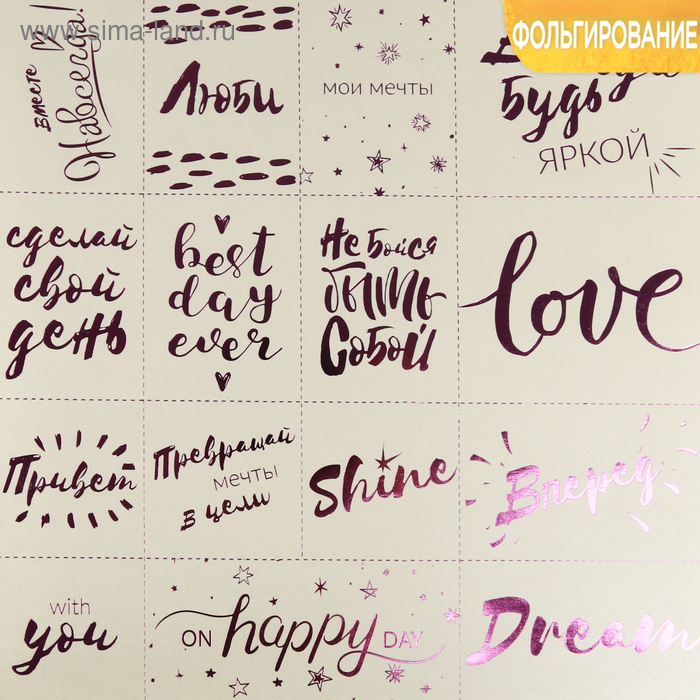 www.sima-land.ru
ФОЛЬГИРОВАНИЕ
Вместе
Навсегда!
Люби
мои мечты
будь
ЯРКОЙ
сделай
свой
день
best
day
ever
Не бойся
быть
Собой
love
Привет
Превращай
мечты
в цели
Shine
Вперед
with
you
ON happy DAY
Dream